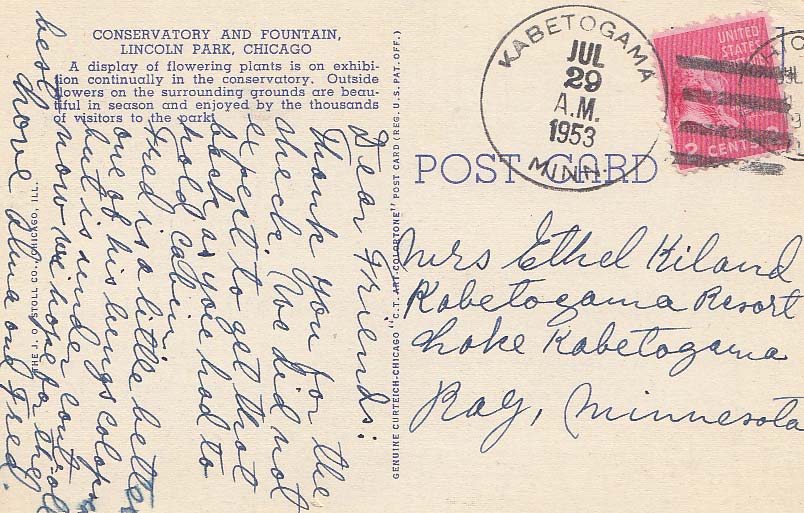 CONSERVATORY AND FOUNTAIN,
LINCOLN PARK, CHICAGO
A display of flowering plants is on exhibi-
tion continually in the conservatory. Outside
flowers on the surrounding grounds are beau-
tiful in season and enjoyed by the thousands
of visitors to the park.
Dear Friends:
Thank you for the
check. We did not
expect to get that
back as you had to
hold cabin.
Fred is a little better
one of his lungs colapsed
but is under controll
now we hope for the
best. Love Alma and Fred.
THE J. O. STOLL CO., CHICAGO, ILL.
GENUINE CURTEICH-CHICAGO "C.T. ART-COLORTONE" POST CARD (REG. U.S. PAT. OFF.)
POST CARD
KABETOGAMA
JUL
29
A.M.
1953
MINN.
UNITED
STATES
2 CENTS
Mrs Ethel Kiland
Kabetogama Resort
Lake Kabetogama
Ray, Minnesota